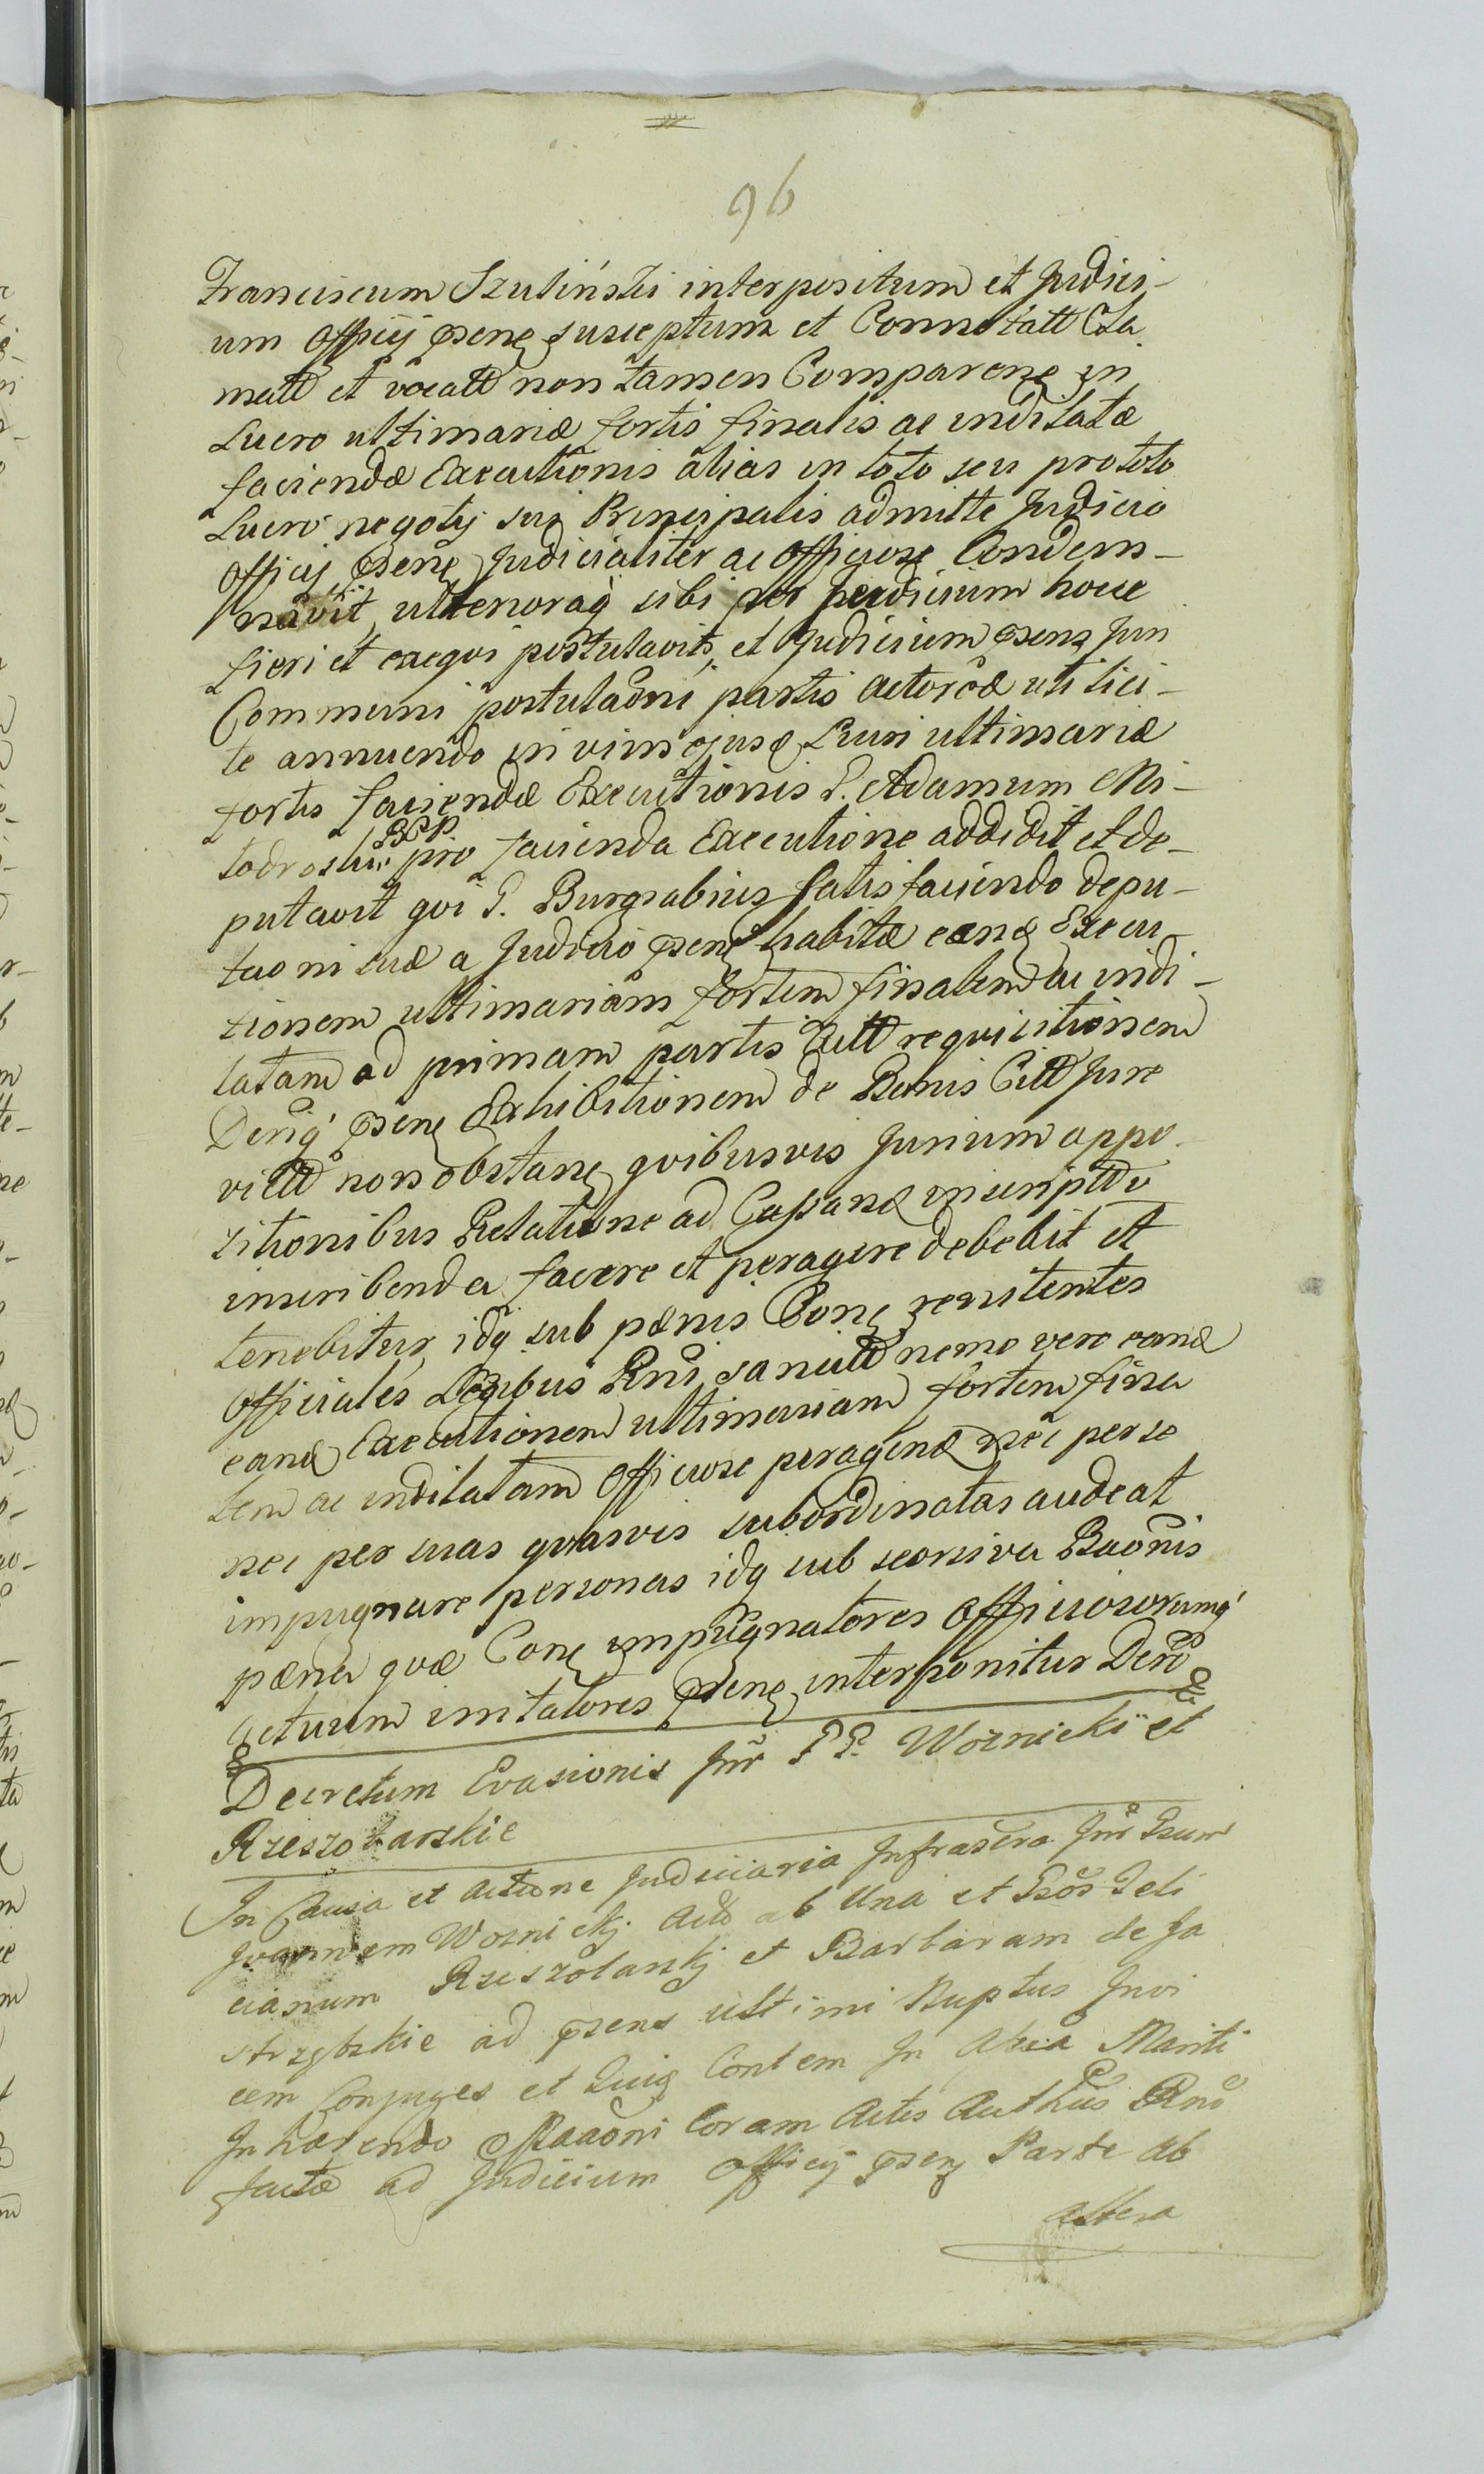 96
Franciscum Szuliński interpositum et Judici-
um Officij psens susceptum et Connotatt Cla
matt et vocatt non tamen Comparens in
Lucro ultimariæ fortis finalis ac indilatæ
faciendæ Executionis alias in toto seu pro toto
Lucro negotij sui Principalis admitte Judicio
Officij psens Judicialiter ac Officiose Condem-
navit, ulterioraq sibi per Judicium hocce
fieri et exequi postulavit, et Judicium psens Jun
Communi postulaoni partis actoreæ uti lici-
te annuendo in vim ejusd Lucri ultimariæ
fortis faciendæ Executionis P. Adamum Mi-
todroski BCP pro facienda Executione addidit et de-
putavit qvi P. Burgrabius satisfaciendo depu-
taoni suæ a Judicio psens habitæ eand Execu
tionem ultimariam fortem finalem ac indi-
latam ad primam partis Autt reqvisitionem
Decriq psens Exhibitionem de Bonis Citt Jure
victt non obstans qvibusvis Jurium oppo-
sitionibus Relatione ad Cassand inscriptdo
inscribenda facere et peragere debebit et
tenebitur, idq sub pænis Cons renitentes
Officiales Legibus Rni sancitt nemo vero eand
eand Executionem ultimariam fortem fina
lem ac indilatam Officiose peragend nec per se
nec per suas qvasvis subordinatas audeat
impugnare personas idq sub seorsiva Baonis
pæna qvæ Cons impugnatores Officiosorumq
actuum imitatores psens interponitur Dero
Decretum Evasionis Jnr PP. Woznicki et
Rzeszotarskie
In Causa et Actione Judiciaria Infrascra Jnr Gsum
Joannem Woznickj Act ab Una et Gsos Feli
cianum Rzeszotarskj et Barbaram de Ja
strzębskie ad psens ultimi Nuptus Invi
cem Conjuges et Quiq Contem In Assa Mariti
Inhærendo Maaoni Coram Actis Authcis Rno
factæ ad Judicium Officij psens Parte ab
altera